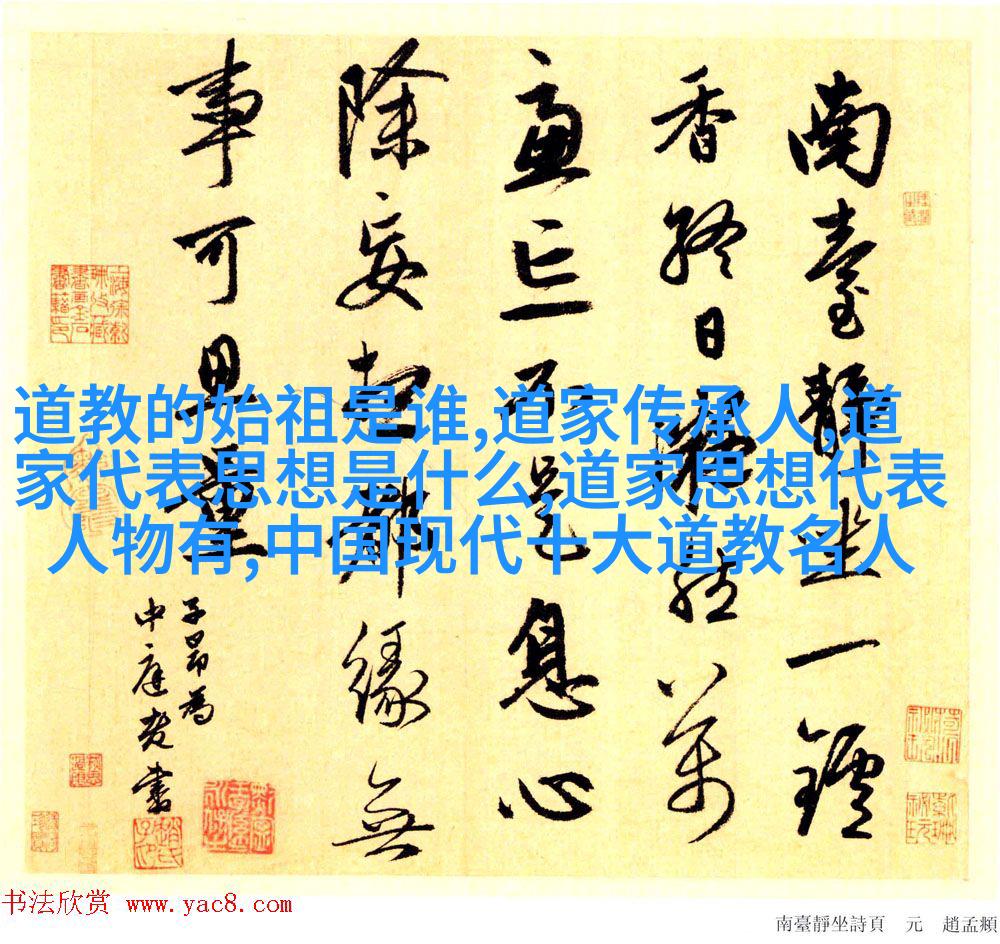 南臺靜坐一鑪
香終日凝然萬
慮亡不是息心
除妄想都緣無
事可思量
子昂為
中庭老書
道教的始祖是谁,道家传承人,道
家代表思想是什么,道家思想代表
人物有,中国现代十大道教名人
书法欣赏 www.yac8.com
南臺靜坐詩頁 元 趙孟頫